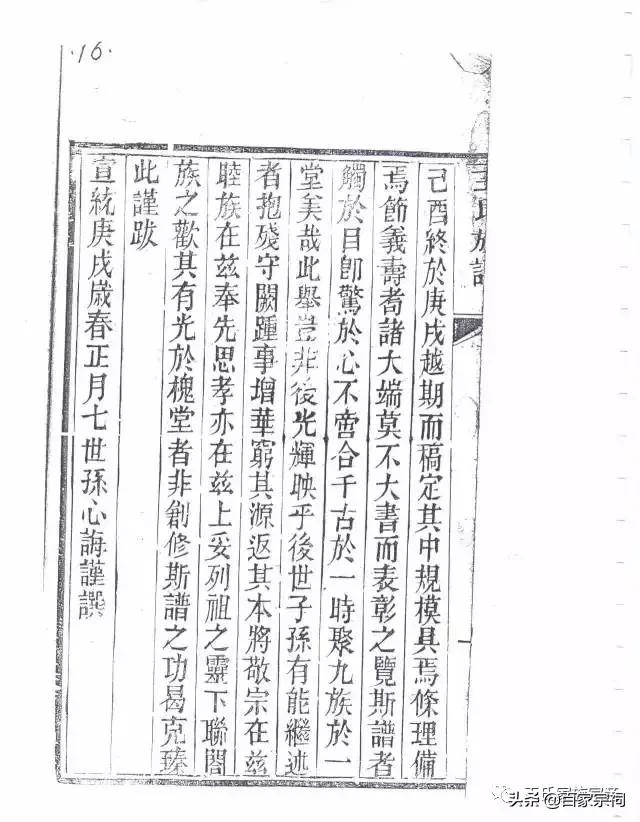 ·16·
王氏族譜
己酉終於庚戌越期而稿定其中規模具焉條理備
焉節義壽耉諸大端莫不大書而表彰之覽斯譜者
觸於目卽驚於心不啻合千古於一時聚九族於一
堂美哉此舉豈非後光輝映乎後世子孫有能繼述
者抱殘守闕踵事增華窮其源返其本將敬宗在兹
睦族在兹奉先思孝亦在兹上妥列祖之靈下聯閤
族之歡其有光於槐堂者非創修斯譜之功曷克臻
此謹跋
宣統庚戌歲春正月七世孫心誨謹譔
王氏家族宗亲
头条 @百家宗祠